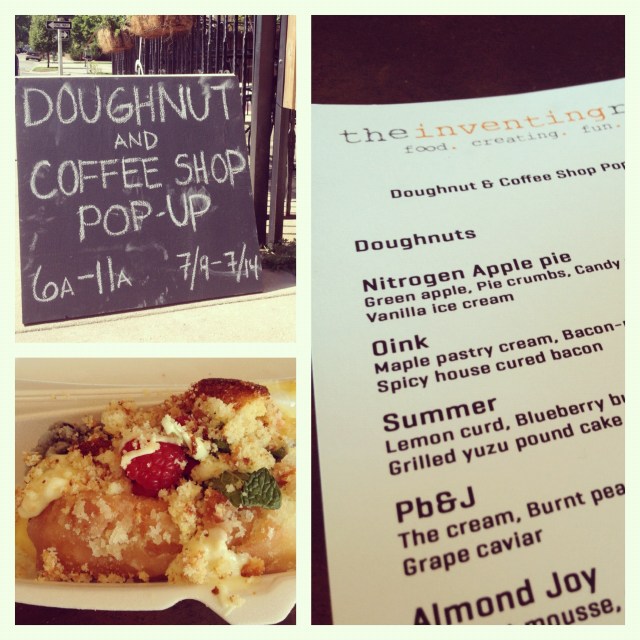 DOUGHNUT
AND
COFFEE SHOP
POP-UP
6A-11A 7/9-7/14
the inventing
food. creating. fun.
Doughnut & Coffee Shop Pop
Doughnuts
Nitrogen Apple pie
Green apple, Pie crumbs, Candy
Vanilla ice cream
Oink
Maple pastry cream, Bacon-
Spicy house cured bacon
Summer
Lemon curd, Blueberry
Grilled yuzu pound cake
Pb&J
The cream, Burnt
Grape caviar
Almond Joy
mousse,